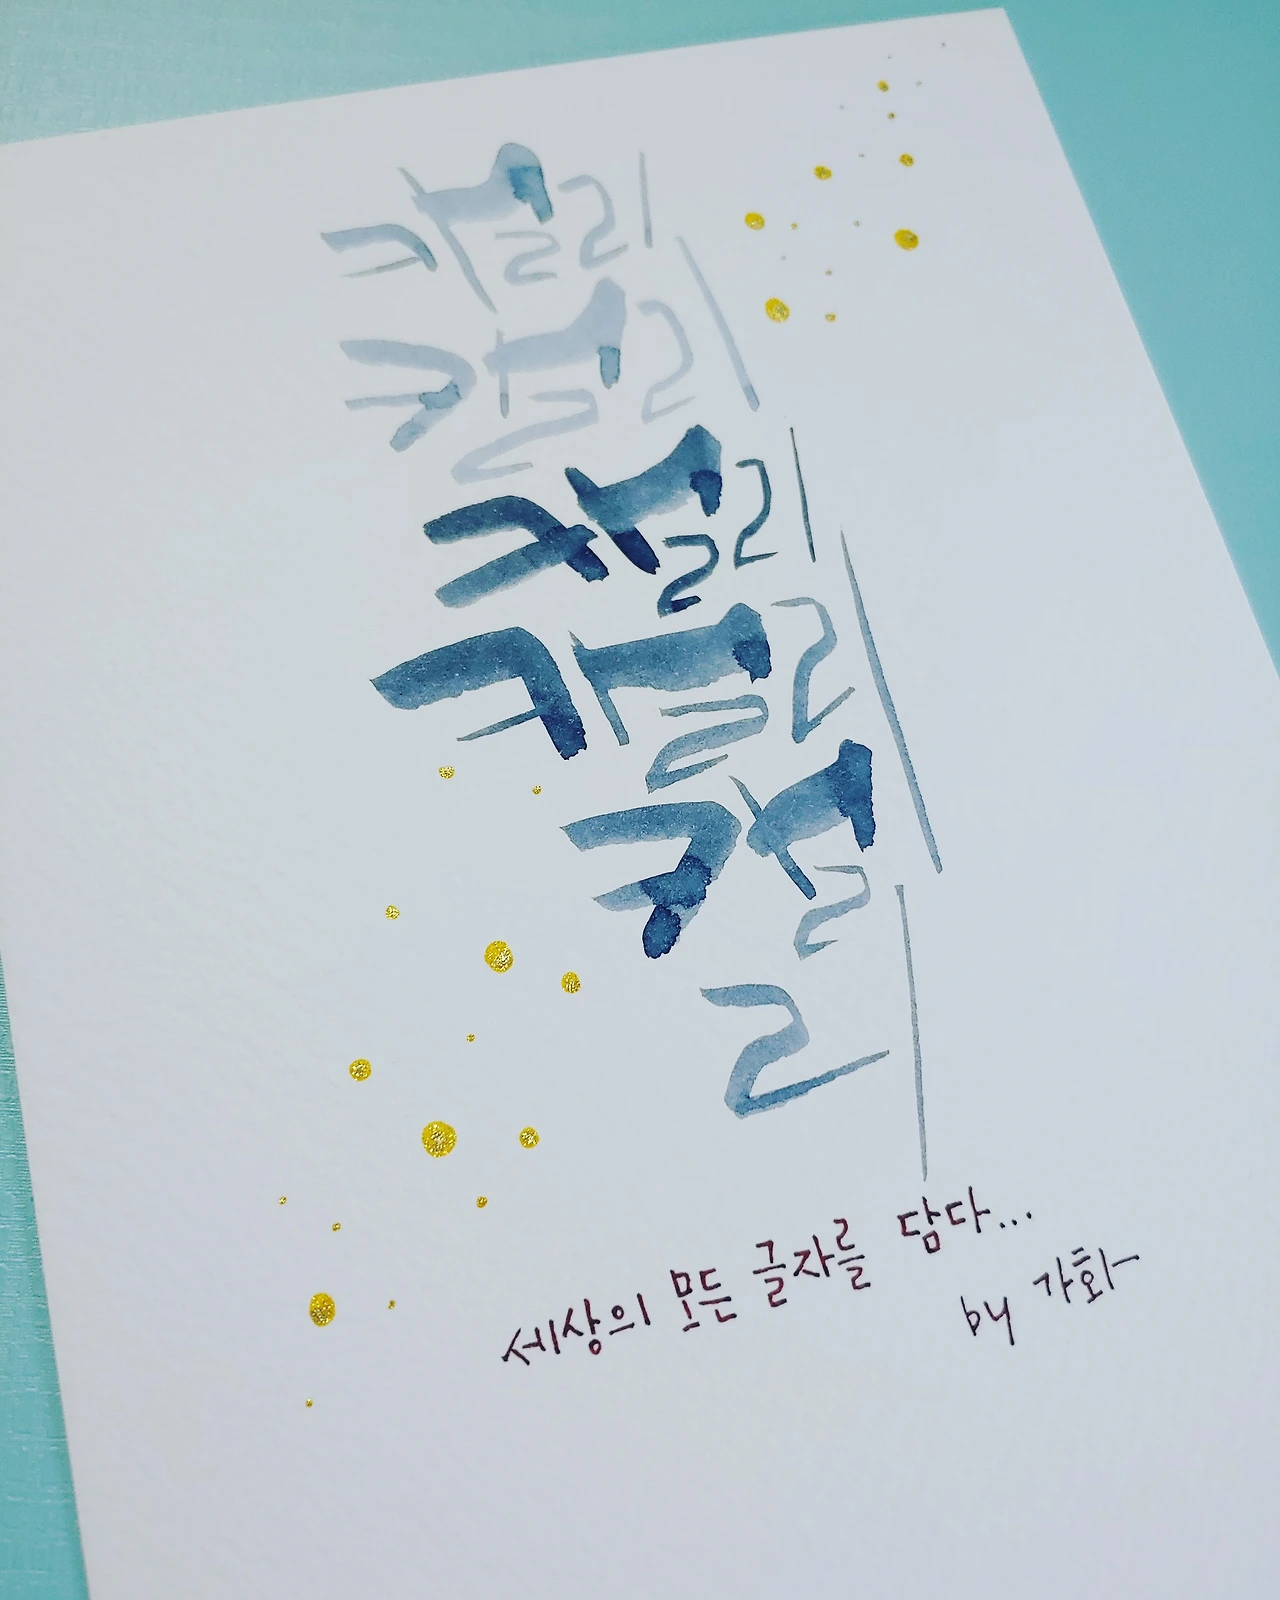 캘리
캘리
캘리
캘리
캘
리
세상의 모든 글자를 담다...
by 가화